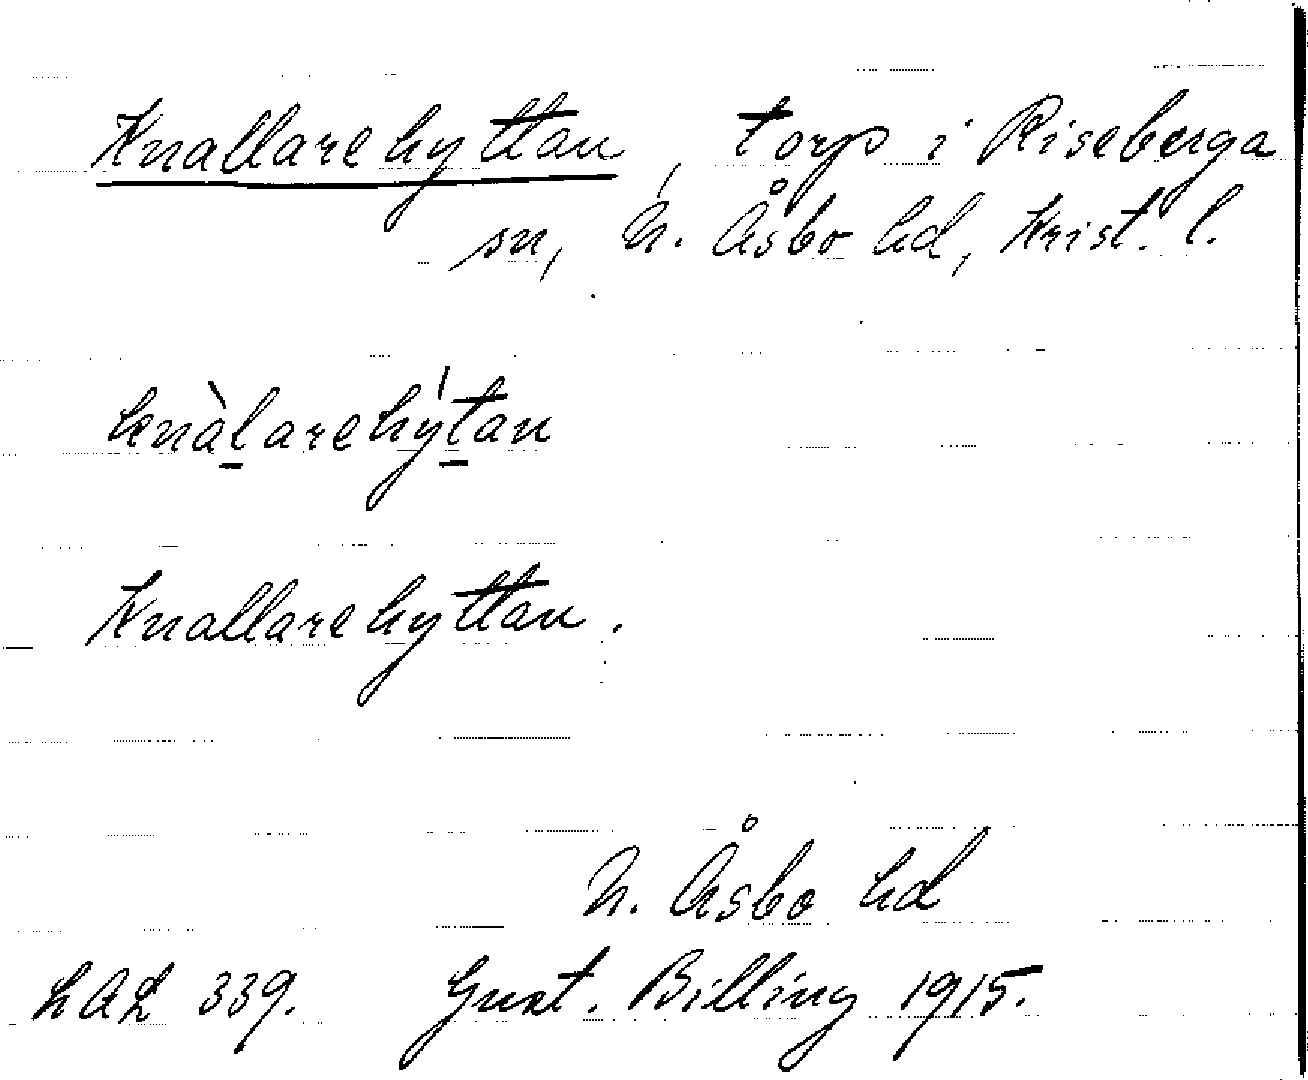 Knallarehyttan, torp i Riseberga
sn, N. Åsbo hd, Krist. l.
knàl̠arehýt̠an
Knallarehyttan.
N. Åsbo hd
LAL 339. Gust. Billing 1915.